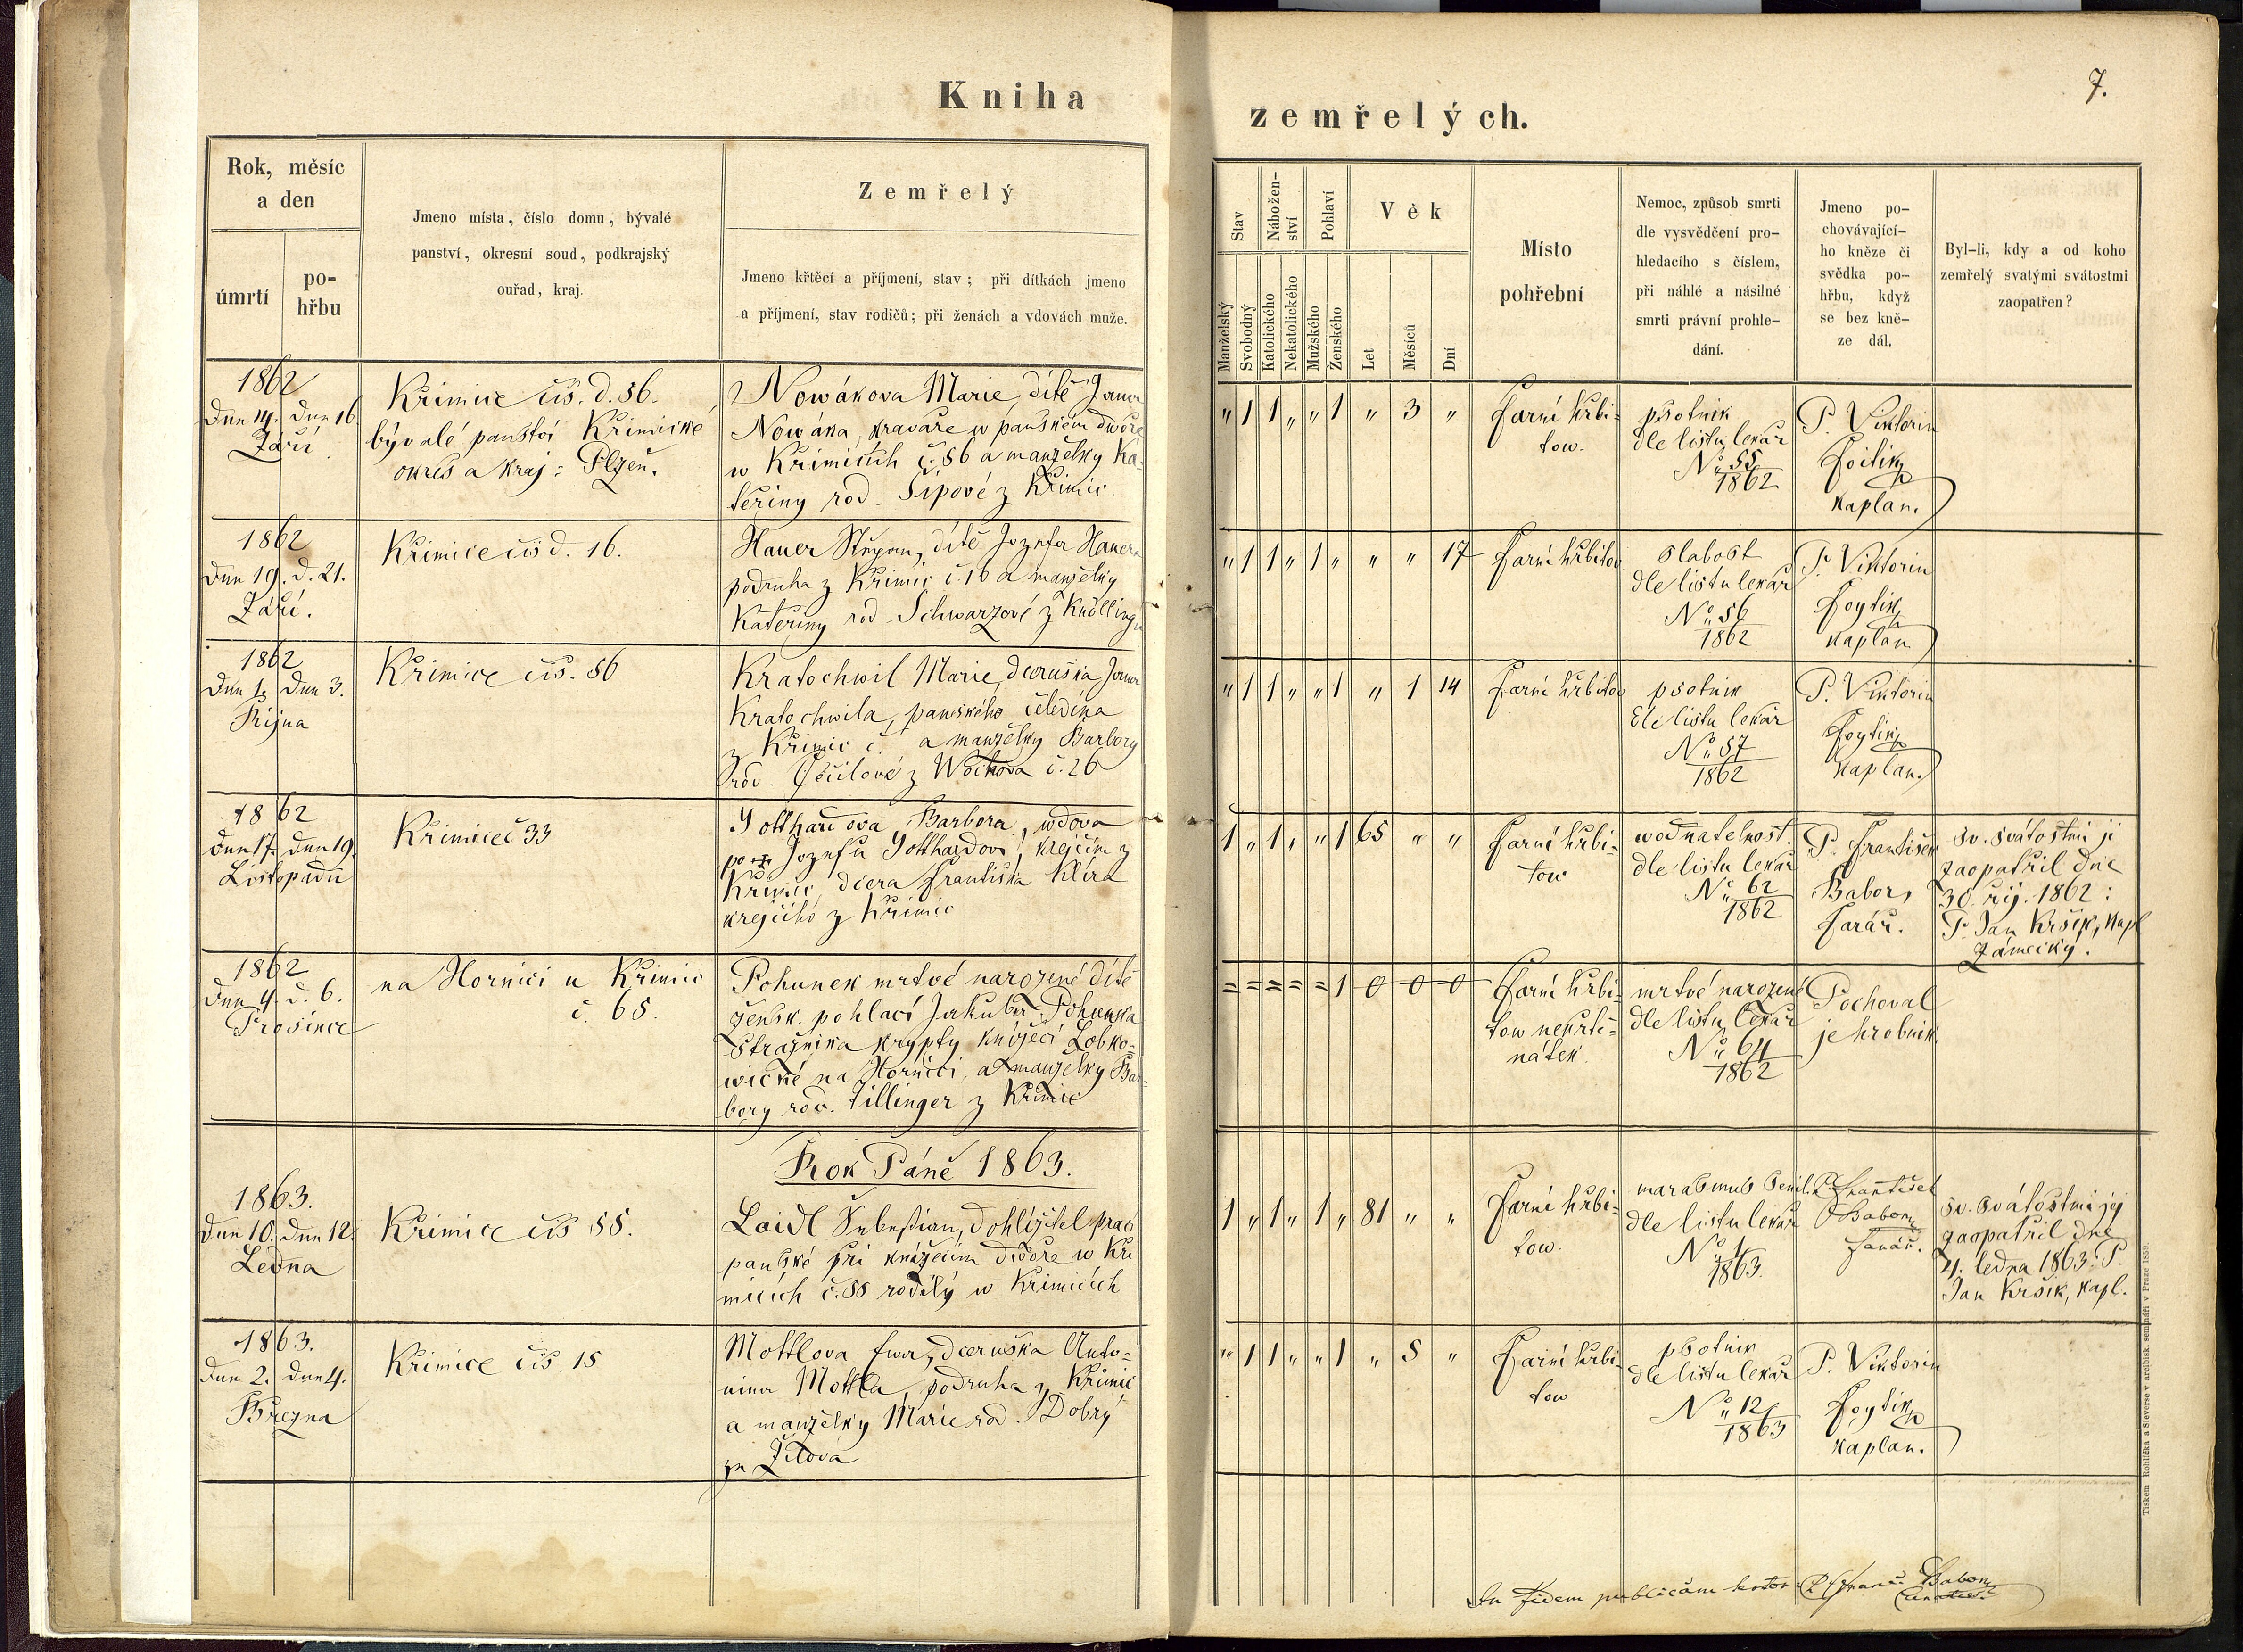 Kniha
zemřelých.
7.
Rok, měsíc
a den
úmrtí
po-
hřbu
Jmeno místa, číslo domu, bývalé
panství, okresní soud, podkrajský
ouřad, kraj.
Zemřelý
Jmeno křtěcí a příjmení, stav; při dítkách jmeno
a příjmení, stav rodičů; při ženách a vdovách muže.
Stav
Manželský
Svobodný
Nábožen-
ství
Katolického
Nekatolického
Pohlaví
Mužského
Ženského
Věk
Let
Měsíců
Dní
Místo
pohřební
Nemoc, způsob smrti
dle vysvědčení pro-
hledacího s číslem,
při náhlé a násilné
smrti právní prohle-
dání.
Jmeno po-
chovávající-
ho kněze či
svědka po-
hřbu, když
se bez kně-
ze dál.
Byl-li, kdy a od koho
zemřelý svatými svátostmi
zaopatřen?
1862
Dne 14. Dne 16
Září
Křimice čís. d. 56.
bývalé panství Křimické
okres a kraj: Plzeň.
Nowákova Marie, dítě Jana
Nowáka, kravaře w panském dwoře
w Křimicích č. 56 a manželky Ka-
teřiny rod. Šípové z Křimic.
" 1 1 " " 1 " 3 "
farní hřbi-
tow.
psotnik
dle listu lekař
No 55
1862
P. Viktorin
Foitik
kaplan.
1862
Dne 19. d. 21.
Září.
Křimice čís d. 16.
Hauer Štěpan, dítě Jozefa Hauera
podruha z Křimic č. 16 a manželky
Kateřiny rod. Schwarzové z Knöllingu
" 1 1 " 1 " " " 17
farní hřbitov
slabost
dle listu lekař
No 56
1862
P. Viktorin
Foytik
kaplan
1862
Dne 1. Dne 3.
Října
Křimice čís. 56
Kratochwil Marie, dceruška Jana
Kratochwila, panského čeledína
z Křimic č. a manželky Barbory
rod. z Wochova č. 26
" 1 1 " " 1 " 1 14
farní hřbitov
psotnik
dle listu lekař
No 57
1862
P. Viktorin
Foytik
kaplan.
1862
Dne 17. Dne 19.
Listopadu
Křimice č 33
Gotthardova Barbora, wdova
po Jozefu Gotthardovi, krejčím z
Křimic, dcera Františka Klíra
krejčího z Křimic
1 " 1 " " 1 65 " "
farní hřbi-
tow
wodnatelnost.
dle listu lekař
No 62
1862
P. František
Babor,
farář.
sv. svátostmi ji
zaopatřil dne
30. říj. 1862:
P. Jan Kršik, kapl
Zámecký.
1862
Dne 4. d. 6.
Prosince
na Hornici u Křimic
č. 65.
Pohunek mrtvé narozené dítě
žensk. pohlaví Jakuba Pohunka
Stražníka krypty knížecí Lobko-
wické na Hornici, a manželky Bar-
bory rod. Zillinger z Křimic
= = = = = 1 0 0 0
farní hřbi-
tow nekřtě-
nátek.
mrtvé narozené
dle listu lekař
No 64
1862
Pochoval
je hrobnik.
Rok Páně 1863.
1863.
Dne 10. Dne 12.
Ledna
Křimice čís 55.
Laidl Sebestian, dohližitel prací
panské při knížecím dwoře w Kři
micích č. 55 rodilý w Křimicích
1 " 1 " 1 " 81 " "
farní hřbi-
tow.
marasmus senil.
dle listu lekař
No 1
1863.
P. František
Babor
farář.
sv. svátostmi jej
zaopatřil dne
4. ledna 1863: P.
Jan Kršik, kapl.
1863.
Dne 2. Dne 4.
Března
Křimice čís. 15
Mottlova Ewa, dceruška Anto-
nina Mottla, podruha z Křimic
a manželky Marie rod. Dobrý
ze Žilova
" 1 1 " " 1 " 5 "
farní hřbi-
tow
psotnik
dle listu lekař
No 12
1863
P. Viktorin
Foytik
kaplan.
In fidem publicam
Babor
Tiskem Rohlíčka a Sieverse v arcibisk. semináři v Praze 1859.